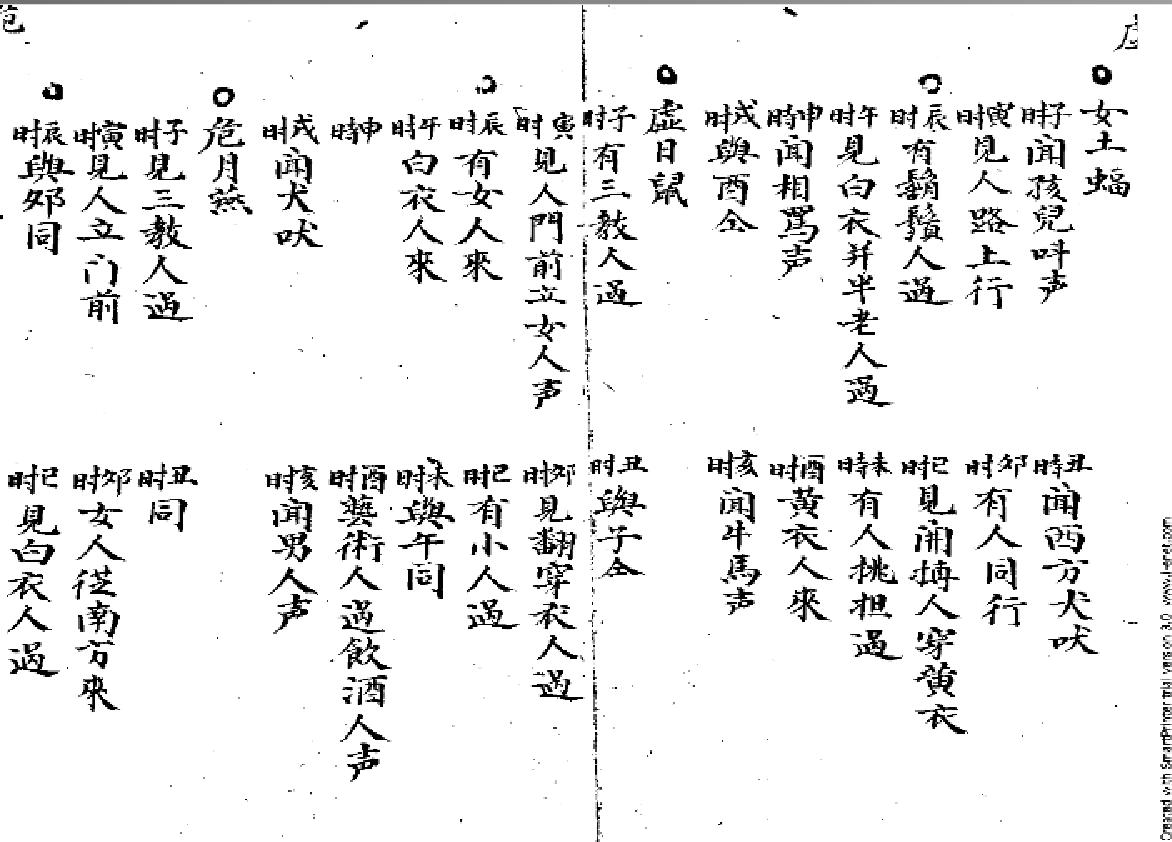 女土蝠
子時聞孩兒呌声
丑時聞西方犬吠
寅時見人路上行
夘時有人同行
辰時有鬍鬚人過
巳時見開摶人穿黄衣
午時見白衣并半老人過
未時有人挑担過
申時聞相罵声
酉時黄衣人來
戌時與酉仝
亥時聞牛馬声
虛日鼠
子时有三教人過
丑时與子仝
寅时見人門前立女人声
夘时見翻穿衣人過
辰时有女人來
巳时有小人過
午时白衣人來
未时與午同
申時
酉时藝術人過飲酒人声
戌时聞犬吠
亥时聞男人声
危月燕
子时見三教人過
丑时同
寅时見人立门前
夘时女人從南方來
辰时與夘同
巳时見白衣人過
危